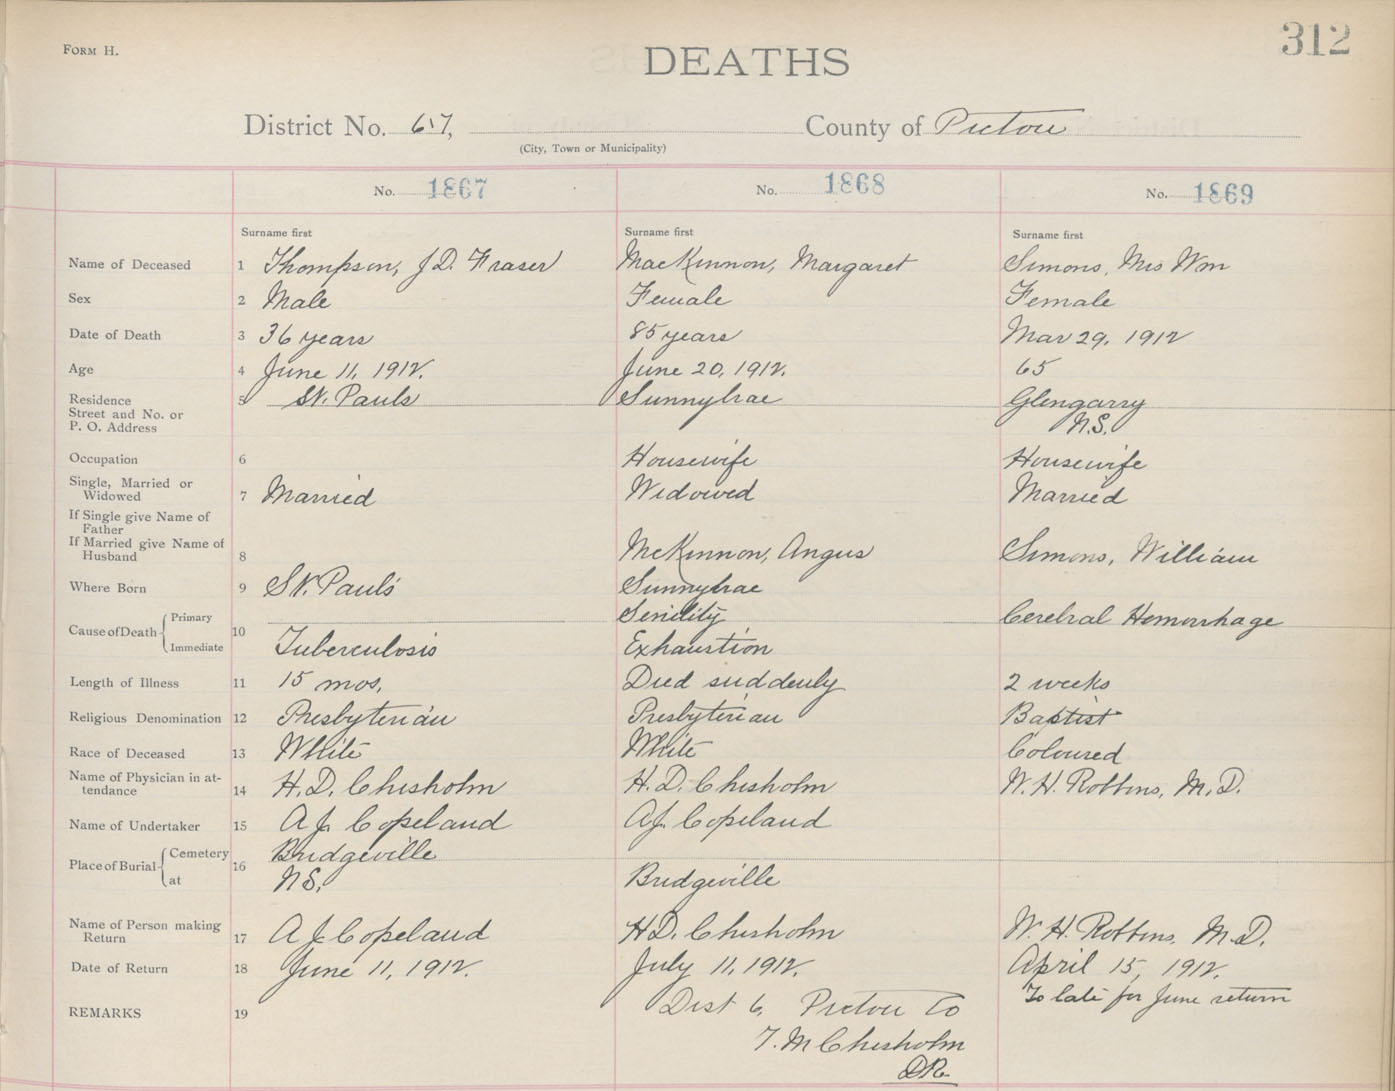 FORM H.
312
DEATHS
District No. 67, County of Pictou
(City, Town or Municipality)
No. 1867 No. 1868 No. 1869
Surname first Surname first Surname first
Name of Deceased 1 Thompson, J.D. Fraser MacKinnon, Margaret Simons, Mrs Wm
Sex 2 Male Female Female
Date of Death 3 36 years 85 years Mar 29, 1912
Age 4 June 11, 1912. June 20, 1912. 65
Residence 5 St. Pauls Sunnybrae Glengarry
Street and No. or N.S.
P. O. Address
Occupation 6 Housewife Housewife
Single, Married or
Widowed 7 Married Widowed Married
If Single give Name of
Father
If Married give Name of
Husband 8 McKinnon, Angus Simons, William
Where Born 9 St. Paul's Sunnybrae
Cause of Death 10 Primary Senility Cerebral Hemorrhage
Immediate Tuberculosis Exhaustion
Length of Illness 11 15 mos. Died suddenly 2 weeks
Religious Denomination 12 Presbyterian Presbyterian Baptist
Race of Deceased 13 White White Coloured
Name of Physician in at-
tendance 14 H.D. Chisholm H.D. Chisholm W.H. Robbins, M.D.
Name of Undertaker 15 A J. Copeland A J. Copeland
Place of Burial 16 Cemetery Bridgeville
at N.S. Bridgeville
Name of Person making
Return 17 A J. Copeland H.D. Chisholm W.H. Robbins. M.D.
Date of Return 18 June 11, 1912. July 11, 1912. April 15, 1912.
To late for June return
REMARKS 19 Dist 6, Pictou Co
T. M Chisholm
D.R.